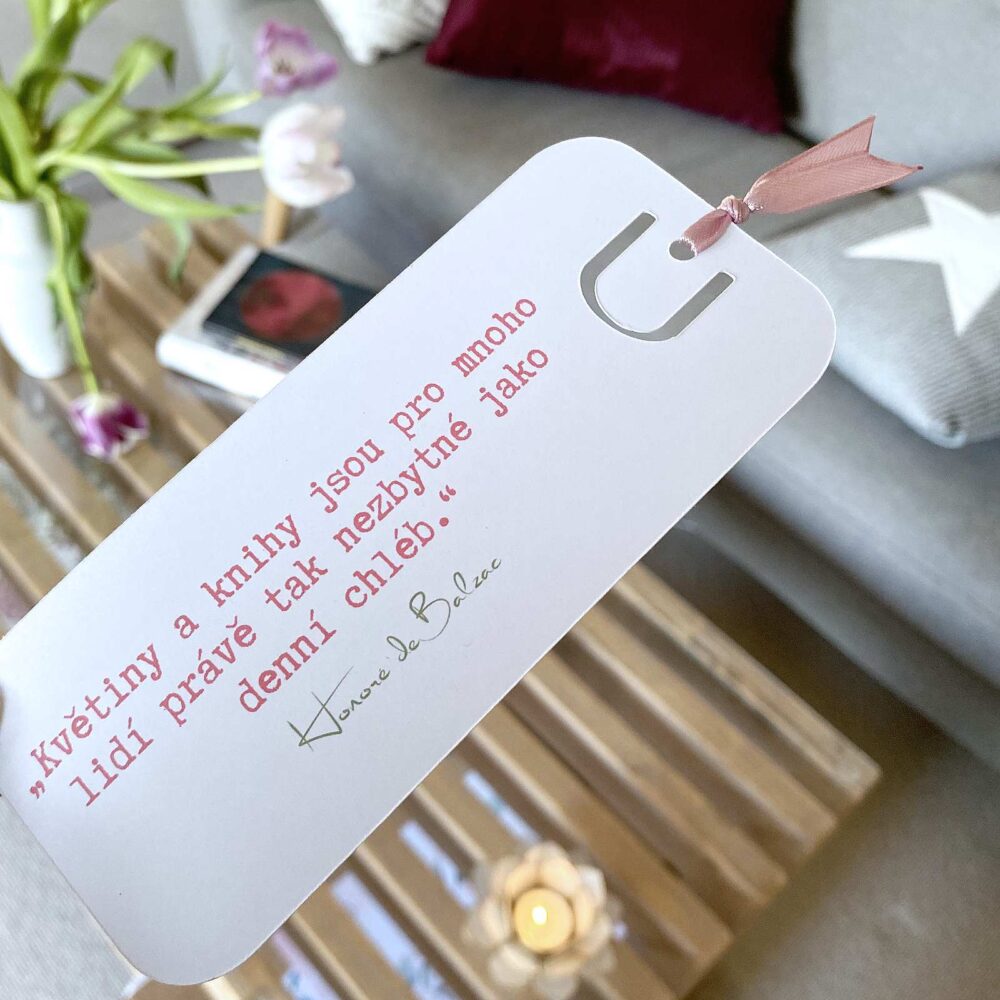 „Květiny a knihy jsou pro mnoho
lidí právě tak nezbytné jako
denní chléb.“
Honoré de Balzac